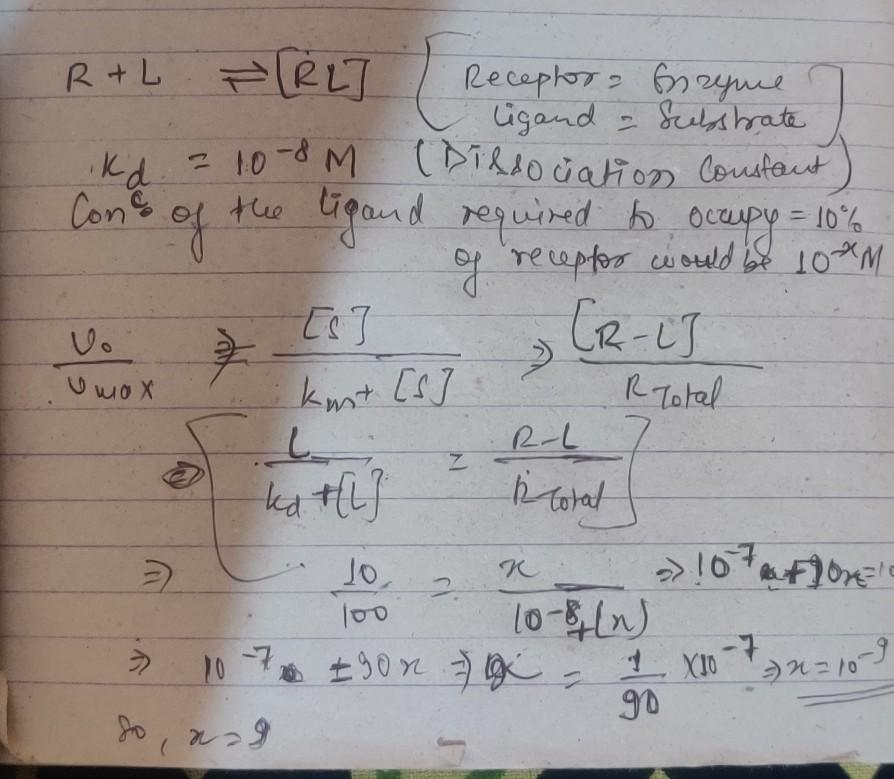 R + L ⇌ [RL] [Receptor = Enzyme
Ligand = Substrate]
Kd = 10⁻⁸ M (Dissociation Constant)
Conc of the ligand required to occupy = 10%
of receptor would be 10⁻ˣ M
V₀/Vmax ⇒ [S]/(Km + [S]) ⇒ [R-L]/R Total
[L/(Kd + [L]) = R-L/R Total]
⇒ 10/100 = x/(10⁻⁸ + (x)) ⇒ 10⁻⁷ + 10x = 10
⇒ 10⁻⁷ = 90x ⇒ x = 1/90 × 10⁻⁷ ⇒ x = 10⁻⁹
So, x = 9